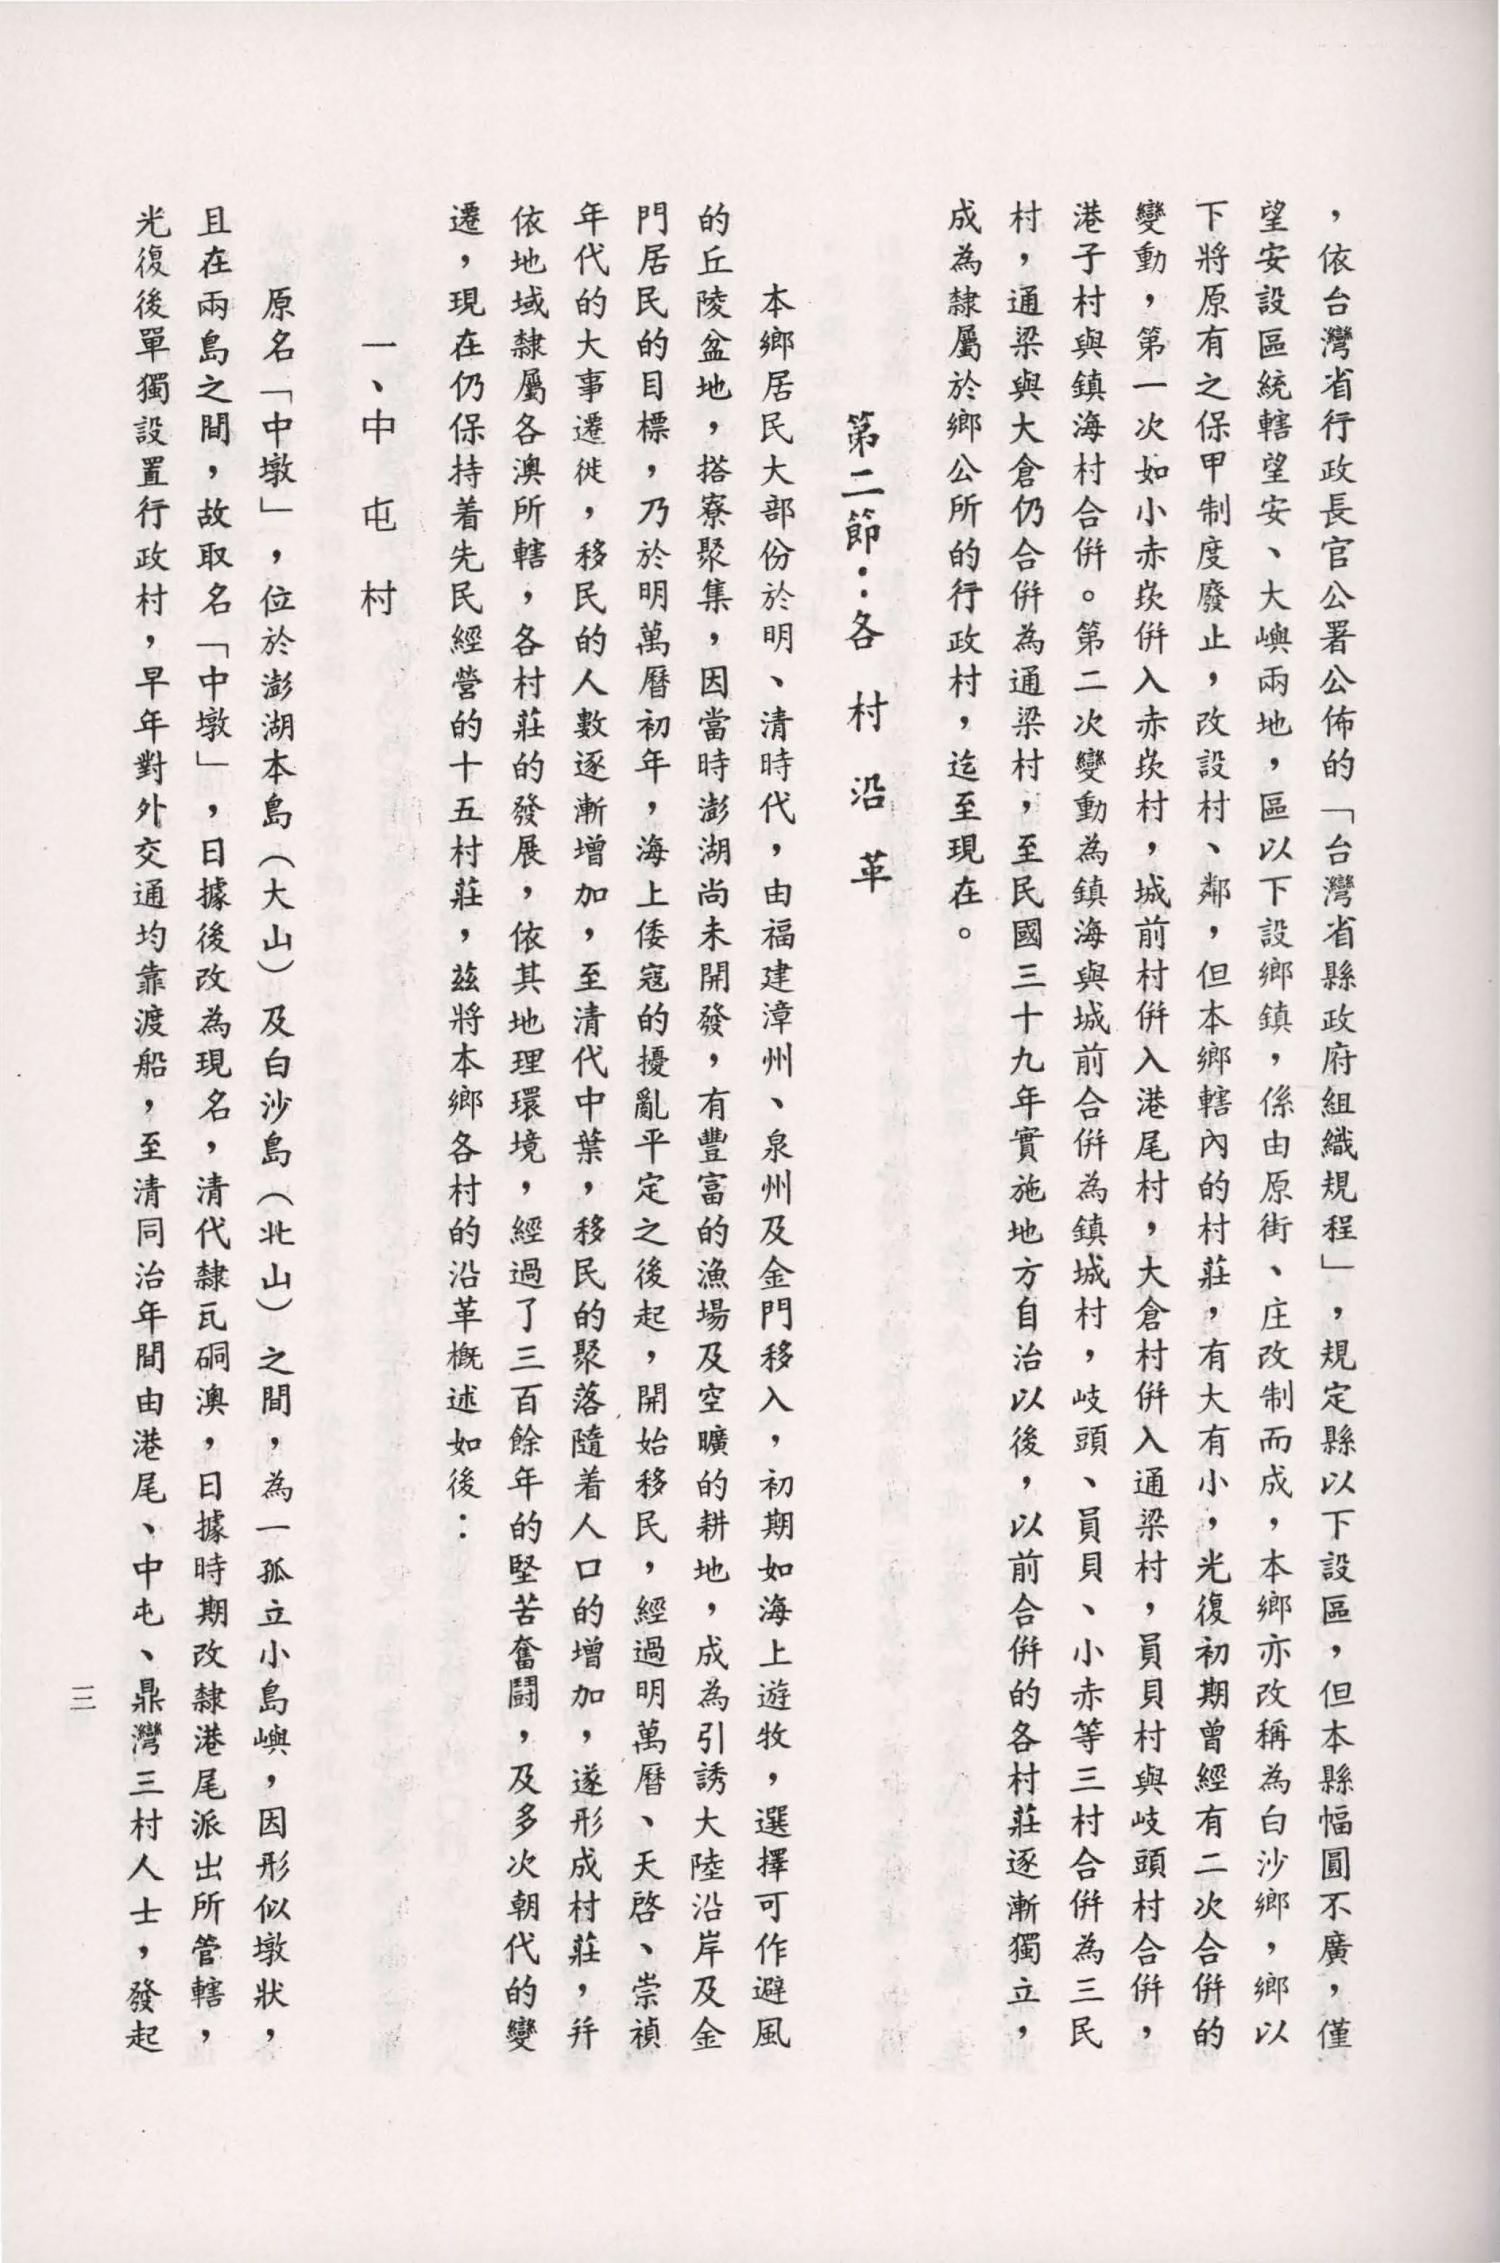 ，依台灣省行政長官公署公佈的「台灣省縣政府組織規程」，規定縣以下設區，但本縣幅圓不廣，僅
望安設區統轄望安、大嶼兩地，區以下設鄉鎮，係由原街、庄改制而成，本鄉亦改稱為白沙鄉，鄉以
下將原有之保甲制度廢止，改設村、鄰，但本鄉轄內的村莊，有大有小，光復初期曾經有二次合併的
變動，第一次如小赤崁併入赤崁村，城前村併入港尾村，大倉村併入通梁村，員貝村與岐頭村合併，
港子村與鎮海村合併。第二次變動為鎮海與城前合併為鎮城村，岐頭、員貝、小赤等三村合併為三民
村，通梁與大倉仍合併為通梁村，至民國三十九年實施地方自治以後，以前合併的各村莊逐漸獨立，
成為隸屬於鄉公所的行政村，迄至現在。
第二節：各村沿革
本鄉居民大部份於明、清時代，由福建漳州、泉州及金門移入，初期如海上遊牧，選擇可作避風
的丘陵盆地，搭寮聚集，因當時澎湖尚未開發，有豐富的漁場及空曠的耕地，成為引誘大陸沿岸及金
門居民的目標，乃於明萬曆初年，海上倭寇的擾亂平定之後起，開始移民，經過明萬曆、天啓、崇禎
年代的大事遷徙，移民的人數逐漸增加，至清代中葉，移民的聚落隨着人口的增加，遂形成村莊，并
依地域隸屬各澳所轄，各村莊的發展，依其地理環境，經過了三百餘年的堅苦奮鬪，及多次朝代的變
遷，現在仍保持着先民經營的十五村莊，茲將本鄉各村的沿革概述如後：
一、中屯村
原名「中墩」，位於澎湖本島（大山）及白沙島（北山）之間，為一孤立小島嶼，因形似墩狀，
且在兩島之間，故取名「中墩」，日據後改為現名，清代隸瓦硐澳，日據時期改隸港尾派出所管轄，
光復後單獨設置行政村，早年對外交通均靠渡船，至清同治年間由港尾、中屯、鼎灣三村人士，發起
三